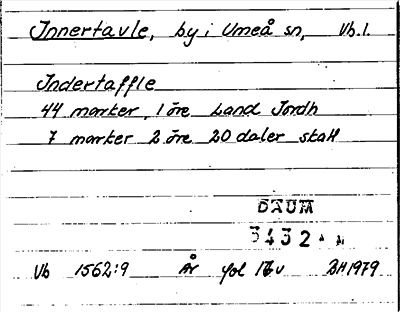 Innertavle, by i Umeå sn, Vb.l.
Indertaffle
44 marker, 1 öre Land Jordh
7 marker 2 öre 20 daler skatt
DAUM
3432
Vb 1562:9 År fol 17v BH 1979